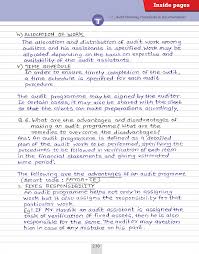 Inside pages
Audit Planning, Procedures & Documentation
iv) DIVISION OF WORK
The allocation and distribution of audit work among
auditors and his assistants is specified. Work may be
allocated depending on the basis on expertise and
availability of the audit assistants.
v) TIME SCHEDULE
In order to ensure timely completion of the audit,
a time schedule is specified for each audit
procedure.
The audit programme may be signed by the auditor.
In certain cases, it may also be shared with the client so
that the clients can make preparations accordingly.
Q 6. What are the advantages and disadvantages of
making an audit programme? What are the
remedies to overcome the disadvantages?
Ans: An audit programme is defined as a detailed
plan of the audit work to be performed, specifying the
procedures to be followed in verification of each item
in the financial statements and giving estimated
time period.
The following are the advantages of an audit programme
1. FIXES RESPONSIBILITY
An audit programme helps not only in assigning
work but it also assigns the responsibility for that
particular work.
Eg: If Mr. is an assistant is assigned the
task of verification of fixed assets, then he is also
responsible for the same. The auditor may question
him in case of any mistake on his part.